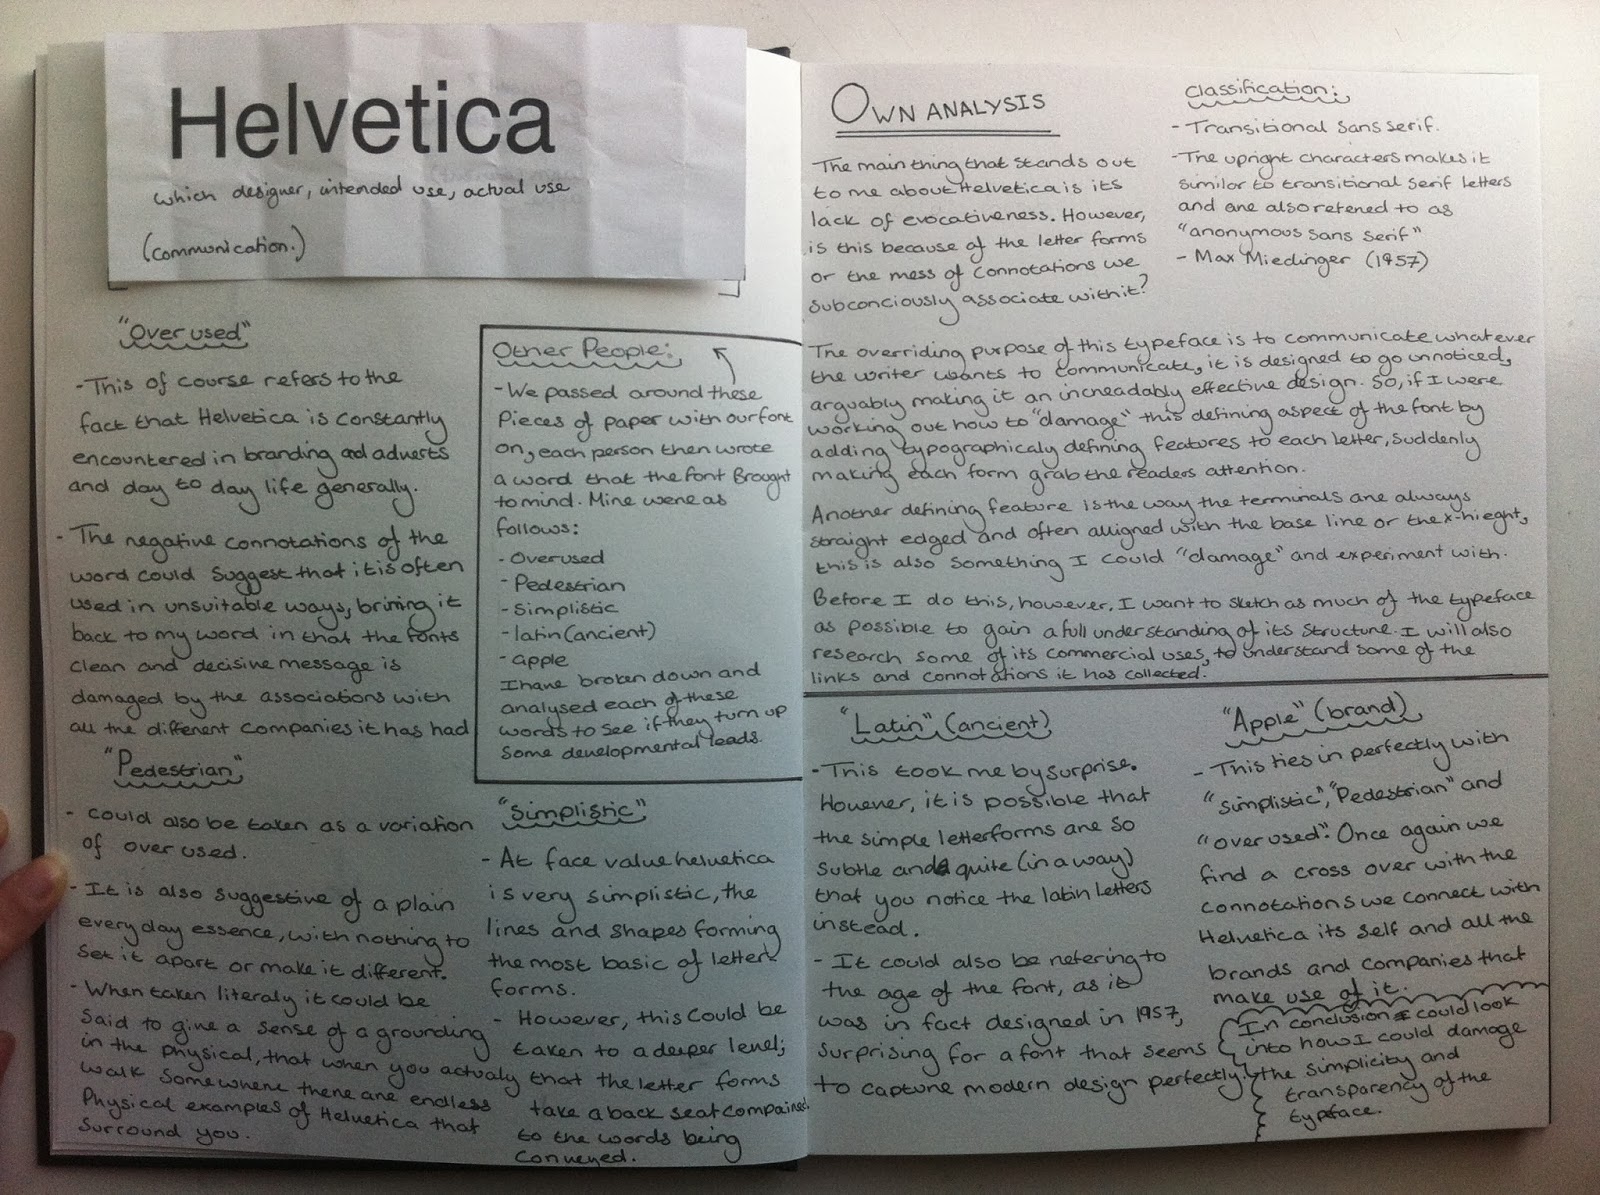 Helvetica
which designer, intended use, actual use
(communication.)
"Over used"
- This of course refers to the
fact that Helvetica is constantly
encountered in branding and adverts
and day to day life generally.
- The negative connotations of the
word could suggest that it is often
used in unsuitable ways, brining it
back to my word in that the fonts
clean and decisive message is
damaged by the associations with
all the different companies it has had
"Pedestrian"
- could also be taken as a variation
of over used.
- It is also suggestive of a plain
every day essence, with nothing to
set it apart or make it different.
- When taken literaly it could be
said to give a sense of a grounding
in the physical, that when you actualy
walk somewhere there are endless
Physical examples of Helvetica that
surround you.
Other People:
- We passed around these
pieces of paper with our font
on, each person then wrote
a word that the font Brought
to mind. Mine were as
follows:
- Overused
- Pedestrian
- Simplistic
- latin (ancient)
- apple
I have broken down and
analysed each of these
words to see if they turn up
some developmental leads.
"Simplistic"
- At face value helvetica
is very simplistic, the
lines and shapes forming
the most basic of letter
forms.
- However, this could be
taken to a deeper level;
that the letter forms
take a back seat compaired
to the words being
conveyed.
OWN ANALYSIS
The main thing that stands out
to me about Helvetica is its
lack of evocativeness. However,
is this because of the letter forms
or the mess of connotations we
subconciously associate with it?
Classification:
- Transitional sans serif.
- The upright characters makes it
similar to transitional serif letters
and are also refered to as
"anonymous sans serif"
- Max Miedinger (1957)
The overriding purpose of this typeface is to communicate whatever
the writer wants to communicate, it is designed to go unnoticed,
arguably making it an increadably effective design. So, if I were
working out how to "damage" this defining aspect of the font by
adding typographicaly defining features to each letter, suddenly
making each form grab the readers attention.
Another defining feature is the way the terminals are always
straight edged and often alligned with the base line or the x-hieght,
this is also something I could "damage" and experiment with.
Before I do this, however, I want to sketch as much of the typeface
as possible to gain a full understanding of its structure. I will also
research some of its commercial uses, to understand some of the
links and connotations it has collected.
"Latin" (ancient)
- This took me by surprise.
However, it is possible that
the simple letterforms are so
subtle and quite (in a way)
that you notice the latin letters
instead.
- It could also be refering to
the age of the font, as it
was in fact designed in 1957,
surprising for a font that seems
to capture modern design perfectly.
"Apple" (brand)
- This ties in perfectly with
"simplistic", "Pedestrian" and
"over used". Once again we
find a cross over with the
connotations we connect with
Helvetica its self and all the
brands and companies that
make use of it.
In conclusion I could look
into how I could damage
the simplicity and
transparency of the
typeface.